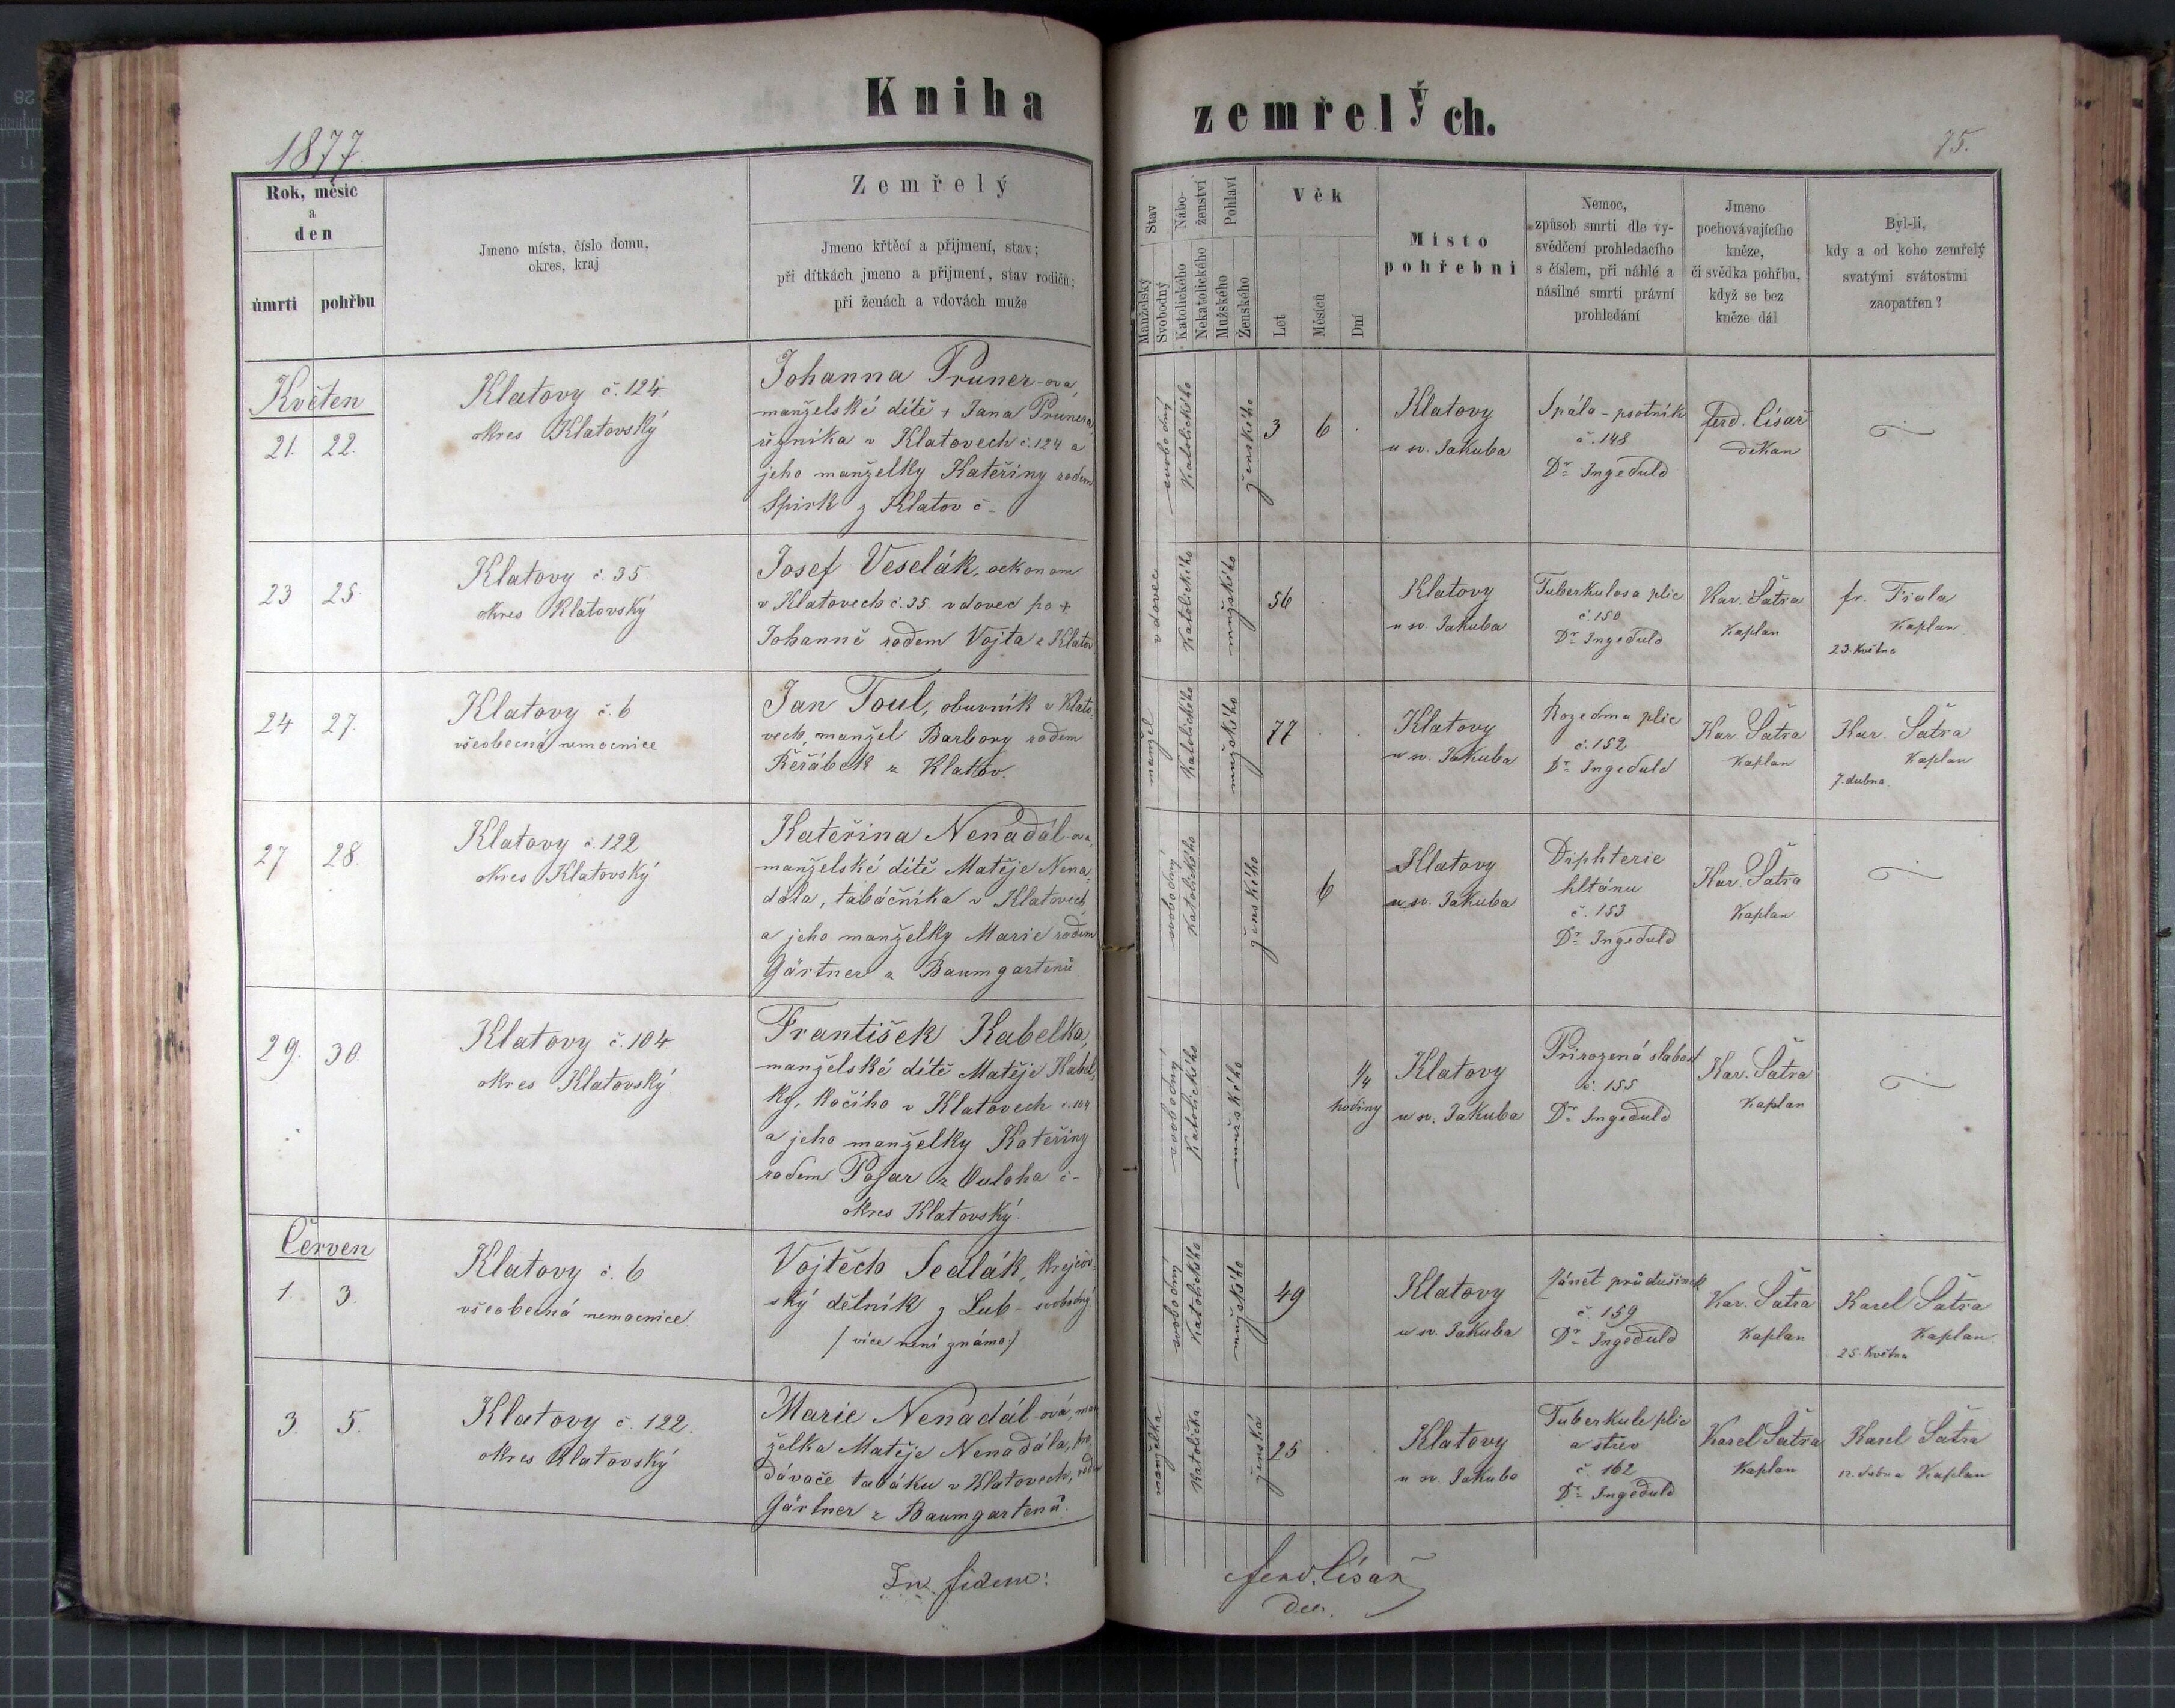 Kniha zemřelých.
1877.
75.
Rok, měsíc
a
den
úmrtí
pohřbu
Jmeno místa, číslo domu,
okres, kraj
Zemřelý
Jmeno křtěcí a přijmení, stav;
při dítkách jmeno a přijmení, stav rodičů;
při ženách a vdovách muže
Stav
Manželský
Svobodný
Nábo-
ženství
Katolického
Nekatolického
Pohlaví
Mužského
Ženského
Věk
Let
Měsíců
Dní
Místo
pohřební
Nemoc,
způsob smrti dle vy-
svědčení prohledacího
s číslem, při náhlé a
násilné smrti právní
prohledání
Jmeno
pochovávajícího
kněze,
či svědka pohřbu,
když se bez
kněze dál
Byl-li,
kdy a od koho zemřelý
svatými svátostmi
zaopatřen?
Květen
21. 22.
Klatovy č. 124
okres Klatovský
Johanna Pruner-ová
manželské dítě + Jana Prunera,
řezníka v Klatovech č. 124 a
jeho manželky Kateřiny rodem
Spirk z Klatov č-
svobodný
Katolického
ženského
3 6 .
Klatovy
u sv. Jakuba
Spála - psotník
č. 148
Dr. Ingeduld
Ferd. Císař
děkan
23 25
Klatovy č. 35
okres Klatovský
Josef Veselák, oekonom
v Klatovech č. 35. vdovec po +
Johanně rodem Vojta z Klatov
vdovec
Katolického
mužského
56 . .
Klatovy
u sv. Jakuba
Tuberkulosa plic
č. 150
Dr. Ingeduld
Kar. Šatra
Kaplan
fr. Fiala
Kaplan
23. Května
24 27.
Klatovy č. 6
všeobecná nemocnice
Jan Toul, obuvník v Klato-
vech, manžel Barbory rodem
Řeřábek z Klatov.
manžel
Katolického
mužského
77 . .
Klatovy
u sv. Jakuba
Rozedma plic
č. 152
Dr. Ingeduld
Kar. Šatra
Kaplan
Kar. Šatra
Kaplan
7. dubna
27 28.
Klatovy č. 122
okres Klatovský
Kateřina Nenadál-ova
manželské dítě Matěje Nena-
dála, tabáčníka v Klatovech
a jeho manželky Marie rodem
Gärtner z Baumgartenů
svobodný
Katolického
ženského
6
Klatovy
u sv. Jakuba
Diphterie
hltánu
č. 153
Dr. Ingeduld
Kar. Šatra
Kaplan
29. 30.
Klatovy č. 104.
okres Klatovský.
František Kabelka,
manželské dítě Matěje Kabel-
ky, Kočího v Klatovech č. 104
a jeho manželky Kateřiny
rodem z Ouloha č-
okres Klatovský.
svobodný
Katolického
mužského
1/4
hodiny
Klatovy
u sv. Jakuba
Přirozená slabost
č. 155
Dr. Ingeduld
Kar. Šatra
Kaplan
Červen
1. 3.
Klatovy č. 6
všeobecná nemocnice.
Vojtěch Sedlák, Krejčov-
ský dělník z Lub - svobodný
/ více není známo /
svobodný
Katolického
mužského
49
Klatovy
u sv. Jakuba
Zánět průdušinek
č. 159
Dr. Ingeduld
Kar. Šatra
Kaplan
Karel Šatra
Kaplan
25. Května
3. 5.
Klatovy č. 122.
okres Klatovský
Marie Nenadál-ová, man-
želka Matěje Nenadála, pro-
dávače tabáku v Klatovech, rodem
Gärtner z Baumgartenů.
manželka
Katolička
ženská
25 . .
Klatovy
u sv. Jakuba
Tuberkule plic
a střev
č. 162
Dr. Ingeduld
Karel Šatra
Kaplan
Karel Šatra
12. dubna Kaplan
In fidem:
Ferd. Císař